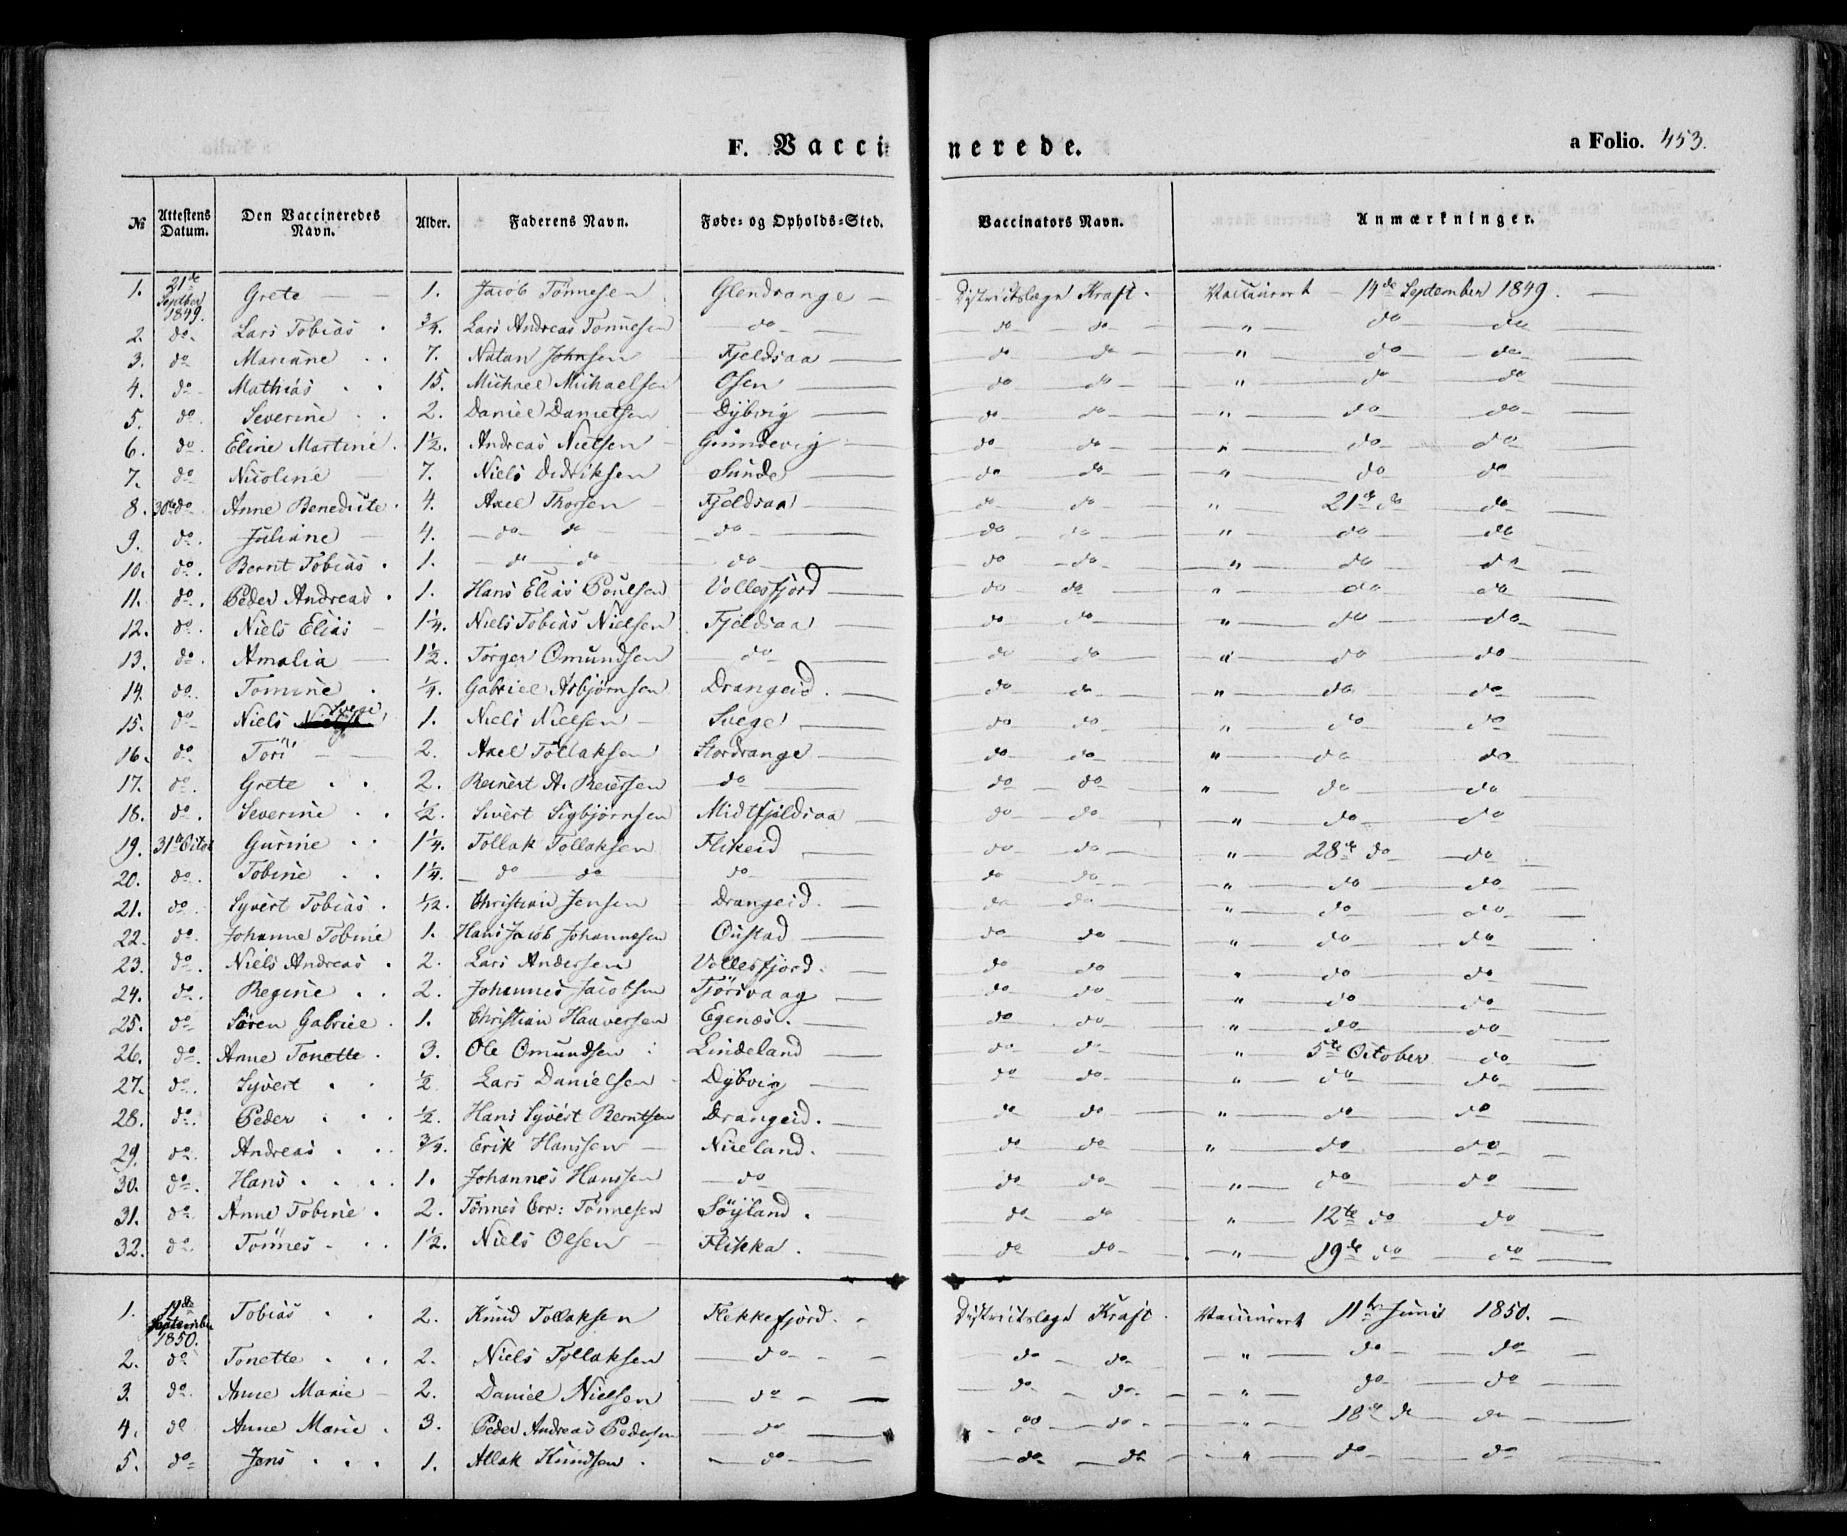 F. Vaccinerede. a Folio. 453.
№ | Attestens Datum. | Den Vaccineredes Navn. | Alder. | Faderens Navn. | Føde- og Opholds-Sted. | Vaccinators Navn. | Anmærkninger.
1. | 21de Septber 1849. | Grete | 1. | Jacob Tönnesen | Glendrange | Districtslæge Kraft. | Vaccineret 14de September 1849.
2. | do | Lars Tobias | 3/4. | Lars Andreas Tönnesen | do | do do | " do do
3. | do | Mariane | 7. | Natan Johnsen | Fjeldsaa | do do | " do do
4. | do | Mathias | 15. | Michael Michaelsen | Osen | do do | " do do
5. | do | Severine | 2. | Daniel Danielsen | Dybvig | do do | " do do
6. | do | Eline Martine | 1½. | Andreas Nielsen | Grundevig | do do | " do do
7. | do | Nicoline | 7. | Niels Didriksen | Sunde | do do | " do do
8. | 30te do | Anne Benedicte | 4. | Axel Thorsen | Fjeldsaa | do do | " 21de do do
9. | do | Juliane | 4. | do do | do | do do | " do do
10. | do | Bernt Tobias | 1. | do do | do | do do | " do do
11. | do | Peder Andreas | 1. | Hans Elias Poulsen | Vollesfjord | do do | " do do
12. | do | Niels Elias | 1¼. | Niels Tobias Nielsen | Fjeldsaa | do do | " do do
13. | do | Amalia | 1½. | Torger Omundsen | do | do do | " do do
14. | do | Tomine | ¼. | Gabriel Asbjørnsen | Drangeid. | do do | " do do
15. | do | Niels Svege | 1. | Niels Nielsen | Svege | do do | " do do
16. | do | Tori | 2. | Axel Tollaksen | Stordrange | do do | " do do
17. | do | Grete | 2. | Reinert A. Reiersen | do | do do | " do do
18. | do | Severine | ½. | Sivert Sigbjørnsen | Midtfjeldsaa | do do | " do do
19. | 31te Octor | Gurine | 1¼. | Tollak Tollaksen | Flikeid | do do | " 28de do do
20. | do | Tobine | 1¼. | do do | do | do do | " do do
21. | do | Syvert Tobias | 1/12. | Christian Jensen | Drangeid. | do do | " do do
22. | do | Johanne Tobine | 1. | Hans Jacob Johannesen | Oustad | do do | " do do
23. | do | Niels Andreas | 2. | Lars Andersen | Vollesfjord. | do do | " do do
24. | do | Regine | 2. | Johannes Jacobsen | Tjörsvaag | do do | " do do
25. | do | Sören Gabriel | 1. | Christian Haaversen | Egenæs. | do do | " do do
26. | do | Anne Tonette | 3. | Ole Omundsen | Lindeland | do do | " 5te October do
27. | do | Syvert | ½ | Lars Danielsen | Dybvig | do do | " do do
28. | do | Peder | ½. | Hans Syvert Berntsen | Drangeid. | do do | " do do
29. | do | Andreas | 3/4. | Erik Hanssen | Nueland. | do do | " do do
30. | do | Hans | 1. | Johannes Hanssen | do | do do | " do do
31. | do | Anne Tobine | 2. | Tönnes Cor: Tönnesen | Söyland. | do do | " 12te do do
32. | do | Tönnes | 1½. | Niels Olsen | Flikka. | do do | " 19de do do
1. | September 1850. | Tobias | 2. | Knud Tollaksen | Flekkefjord. | Districtslæge Kraft. | Vaccineret 11te Juni 1850.
2. | do | Tonette | 2. | Niels Tollaksen | do | do do | " do do
3. | do | Anne Marie | 2. | Daniel Nielsen | do | do do | " do do
4. | do | Anne Marie | 3. | Peder Andreas Pedersen | do | do do | " 18de do do
5. | do | Jens | 1. | Atlak Knudsen. | do | do do | " do do